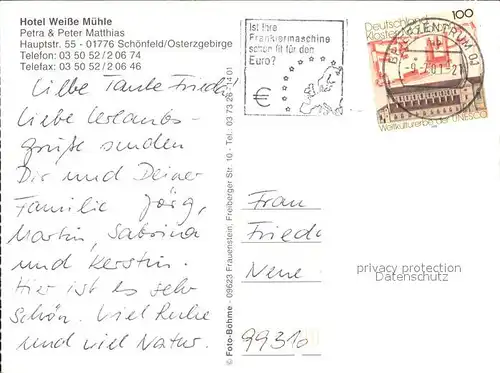 Hotel Weiße Mühle
Petra & Peter Matthias
Hauptstr. 55 - 01776 Schönfeld/Osterzgebirge
Telefon: 03 50 52 / 2 06 74
Telefax: 03 50 52 / 2 06 46
Ist Ihre
Frankiermaschine
schon fit für den
Euro?
€
Deutschland 100
Kloster
Weltkulturerbe der UNESCO
BRIEFZENTRUM 01
Liebe Tante Frieda
Liebe Urlaubs-
grüße senden
Dir und Deiner
Familie Jörg,
Martin, Sabrina
und Kerstin.
Hier ist es sehr
schön. Viel Ruhe
und viel Natur.
© Foto-Böhme - 09623 Frauenstein, Freiberger Str. 10 - Tel.: 03 73 26
Frau
Fried
Neue
99310
privacy protection
Datenschutz